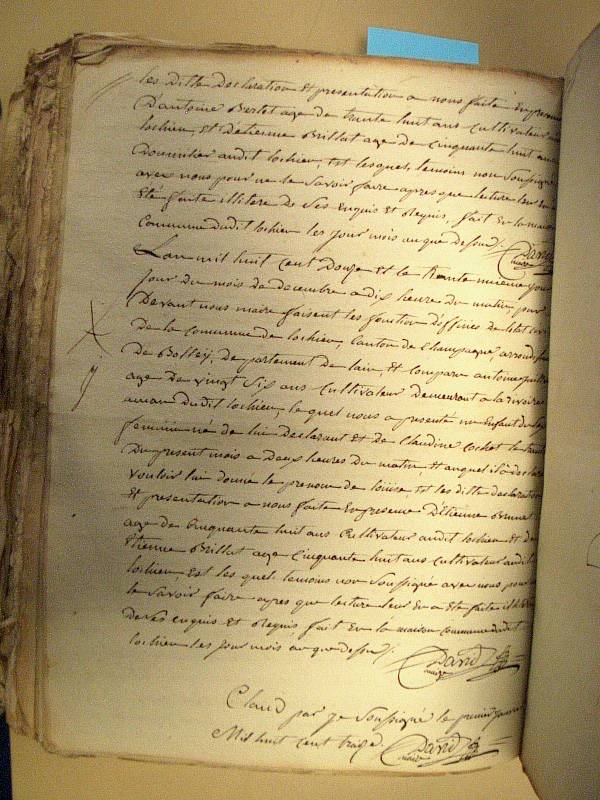 les ditte declaration Et presentation a nous faite En presence
Dantoine Berlet age de trante huit ans cultivateur
lochieu, Et Détienne Brillat age de Cinquante huit ans
Domicilier audit lochieu, Est lesquels temoins non Soussigné
avec nous pour ne le Savoir faire apres que lecture leur En a
Eté faite illitere de Ses Enquis Et Requis, fait En la maison
Commune dudit lochieu les jour mois an que dessus /.
David
maire
Lan mil huit Cent Douze et le trante unieme jour
jour du mois de decembre a dix heures du matin, pour
Devant nous maire faisent les fonction d'officies de letat civil
De la commune de lochieu, Canton de Champagne arrondis
De Belley, De partement de lain, Et Compare antoine
age de vingt Six ans Cultivateur demeurant a la
dudit lochieu, le quel nous a presenté un Enfant du Sexe
feminin né de lui Declarant Et de Claudine Cochet le trante
Du present mois a Deux heures du matin Et auquel il a declaré
vouloir lui donné le prenom de louise, Est les ditte declaration
Et presentation a nous faite En presence Détienne
age de Cinquante huit ans Cultivateur audit lochieu Et de
Etienne Brillat age Cinquante huit ans cultivateur audit
lochieu, Est les quels temoins non Soussigné avec nous pour ne
le Savoir faire apres que lecture leur En a Eté faite
de Ses enquis Et Requis fait En la maison Commune dudit
lochieu les jour mois an que dessus /.
David
maire
Claud par je Soussigné le premier janvier
Mil huit Cent traize.
David
maire